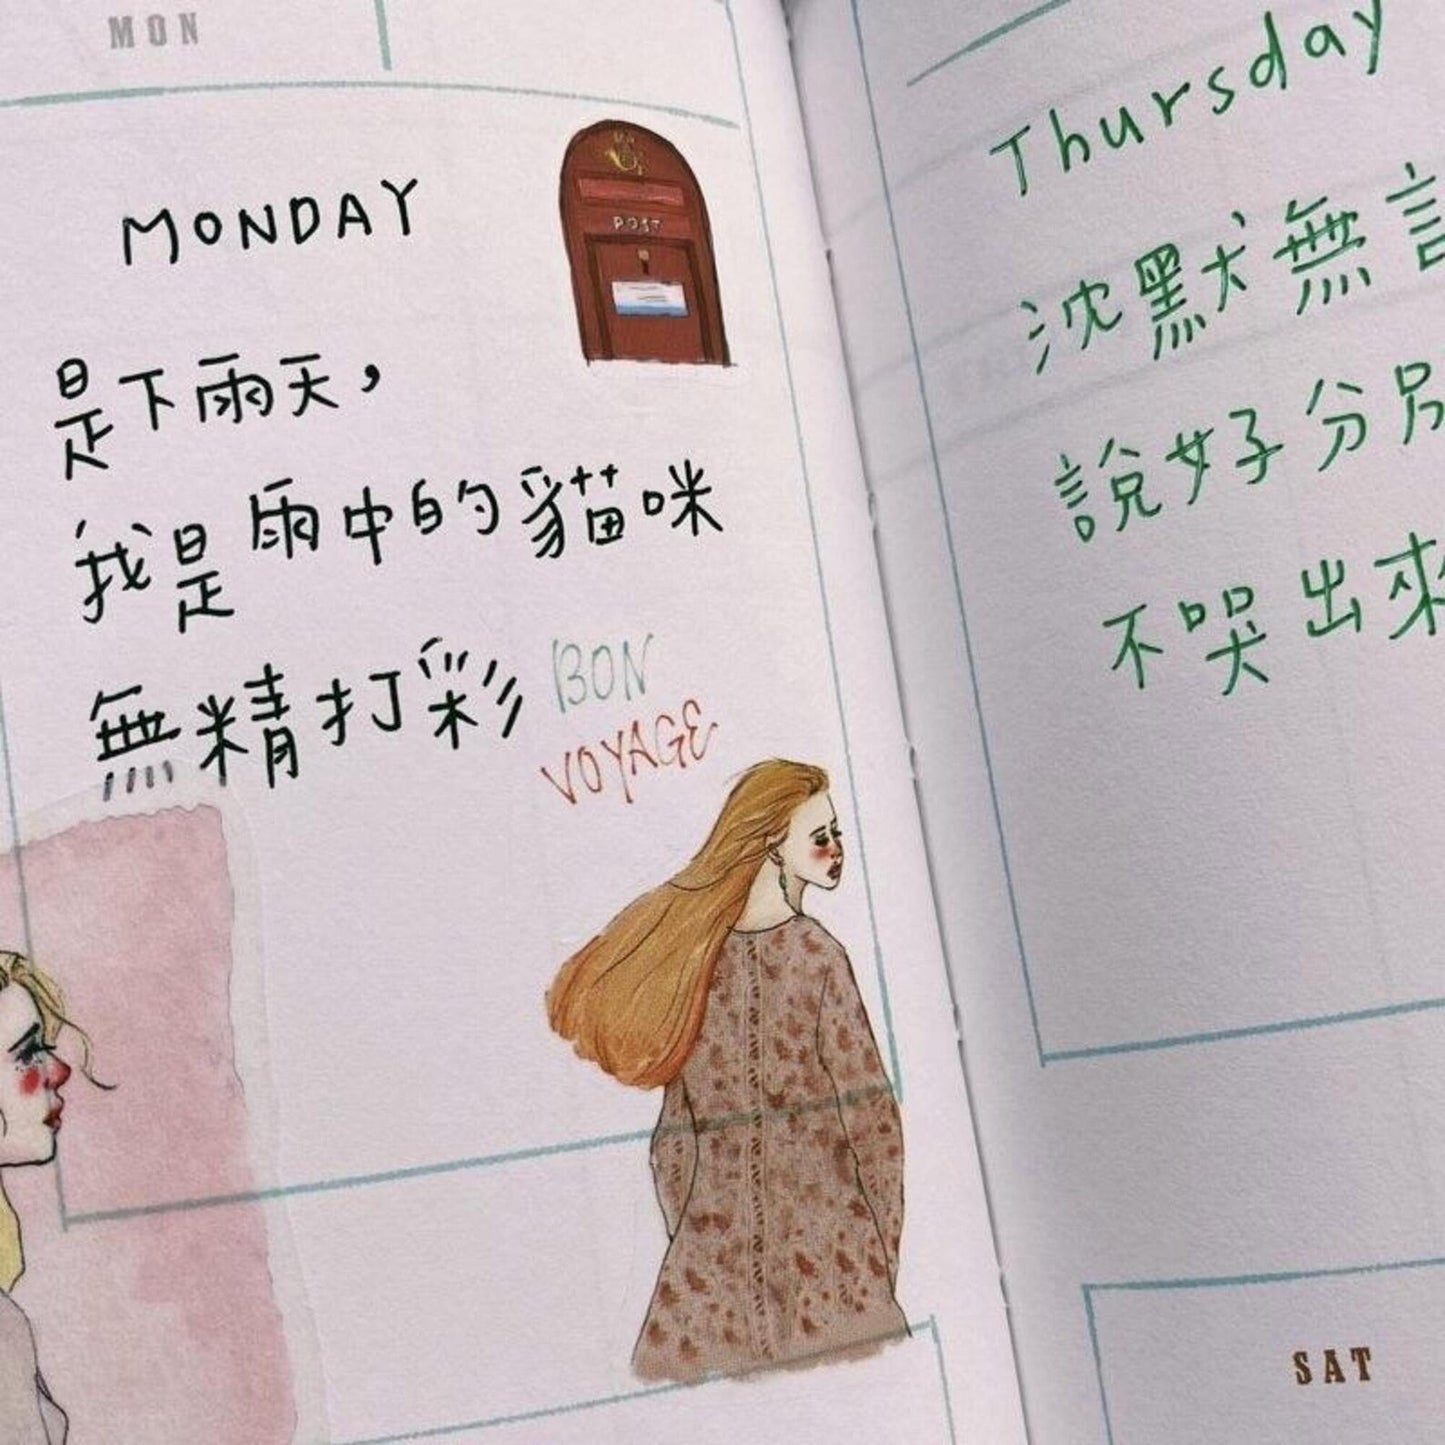 MON
MONDAY
POST
是下雨天，
我是雨中的貓咪
無精打彩
BON
VOYAGE
Thursday
沈默無言
說好分別
不哭出來
SAT